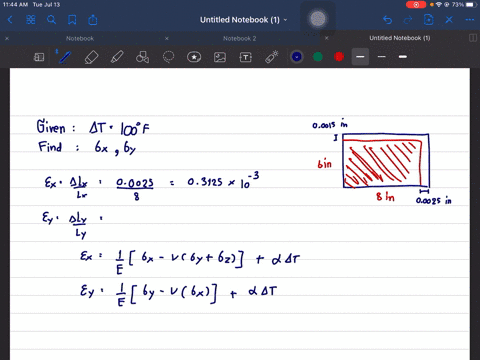 11:44 AM Tue Jul 13
73%
Untitled Notebook (1)
Notebook
Notebook 2
Untitled Notebook (1)
Given : ΔT = 100°F
Find : σx , σy
εx = ΔLx/Lx = 0.0025/8 = 0.3125 × 10^-3
εy = ΔLy/Ly =
εx = 1/E [ σx - ν (σy + σz) ] + α ΔT
εy = 1/E [ σy - ν (σx) ] + α ΔT
0.0015 in
6in
8 in
0.0025 in